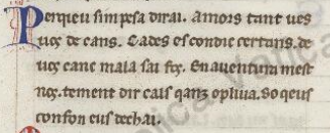 Perqeu sim pesa dirai. Amors tant ues
uoz de eans. Eades os condic certans. de
uoz cane mala fai fez. En auentura mest
noz. tement dir cals qanz oploua. So qeus
confon eus dechai.